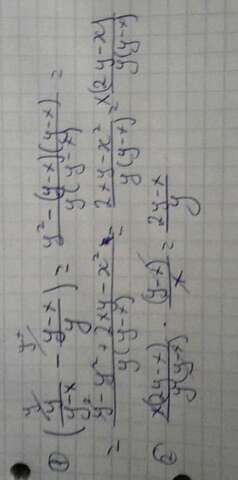 ① (y/(y-x) - (y-x)/y) = (y² - (y-x)(y-x))/(y(y-x)) =
= (y² - y² + 2xy - x²)/(y(y-x)) = (2xy - x²)/(y(y-x)) = x(2y-x)/(y(y-x))
② x(2y-x)/(y(y-x)) · (y-x)/x = (2y-x)/y